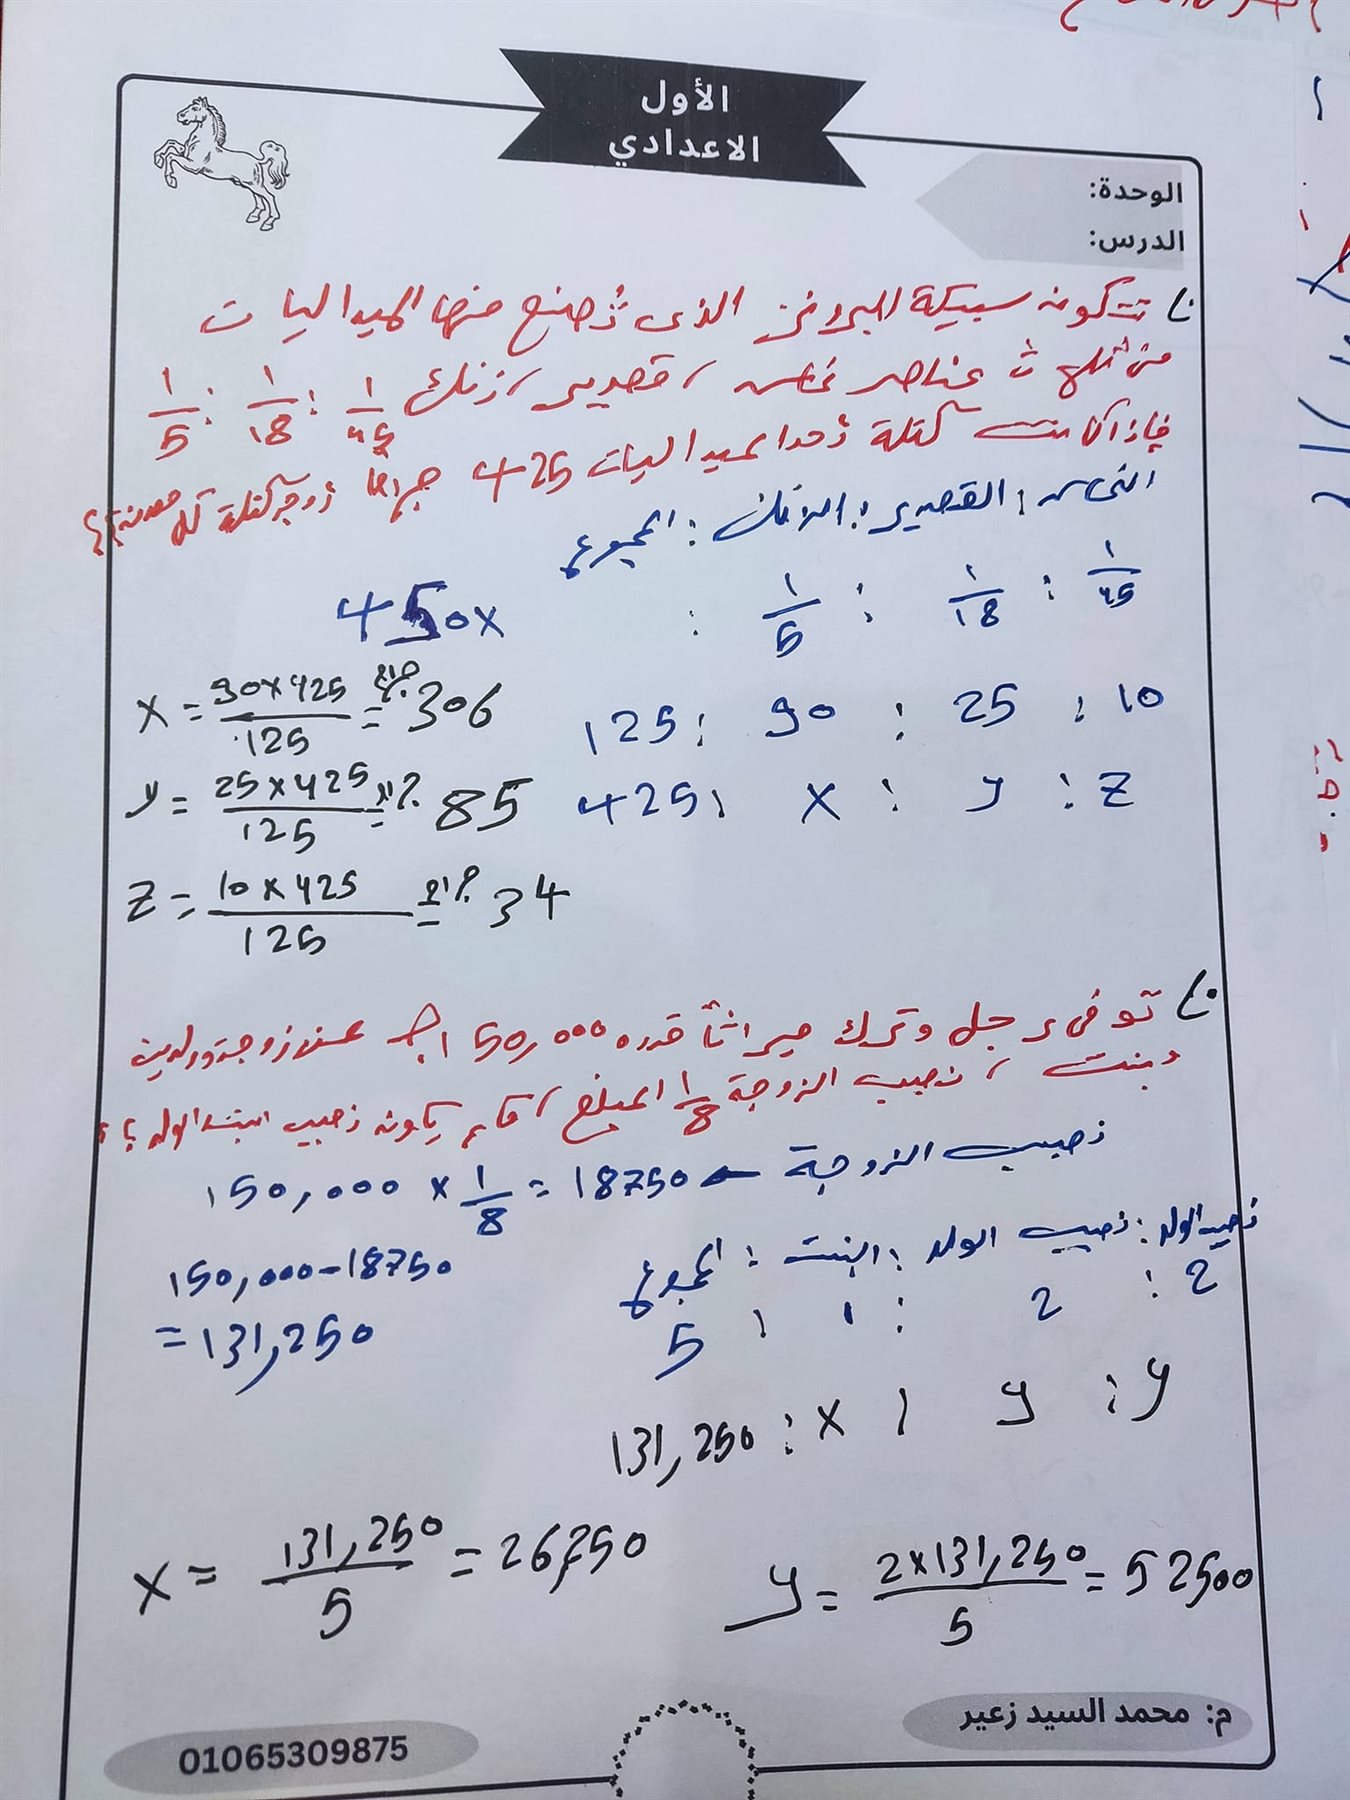 الأول
الاعدادي
الوحدة:
الدرس:
تتكون سبيكة البرونز الذى تُصنع منها الميداليات
من ثلاث عناصر نحاس، قصدير، زنك 1/45 : 1/18 : 1/5
فإذا كانت كتلة أحد الميداليات 425 جراما أوجد كتلة كل معدن؟؟
النحاس : القصدير : الزنك : المجموع
1/45 : 1/18 : 1/5 :
450x
10 : 25 : 90 : 125
Z : y : x : 425
x = 90 x 425 / 125 = 306 جرام
y = 25 x 425 / 125 = 85 جرام
Z = 10 x 425 / 125 = 34 جرام
توفى رجل وترك ميراثاً قدره 150,000 ج عن زوجة وولدين
وبنت، نصيب الزوجة 1/8 المبلغ، فكم يكون نصيب البنت الولد؟؟
نصيب الزوجة
150,000 x 1/8 = 18750
نصيب الولد : نصيب الولد : البنت : المجموع
2 : 2 : 1 : 5
150,000 - 18750
= 131,250
y : y : x : 131,250
x = 131,250 / 5 = 26,250
y = 2 x 131,250 / 5 = 52500
م: محمد السيد زعير
01065309875